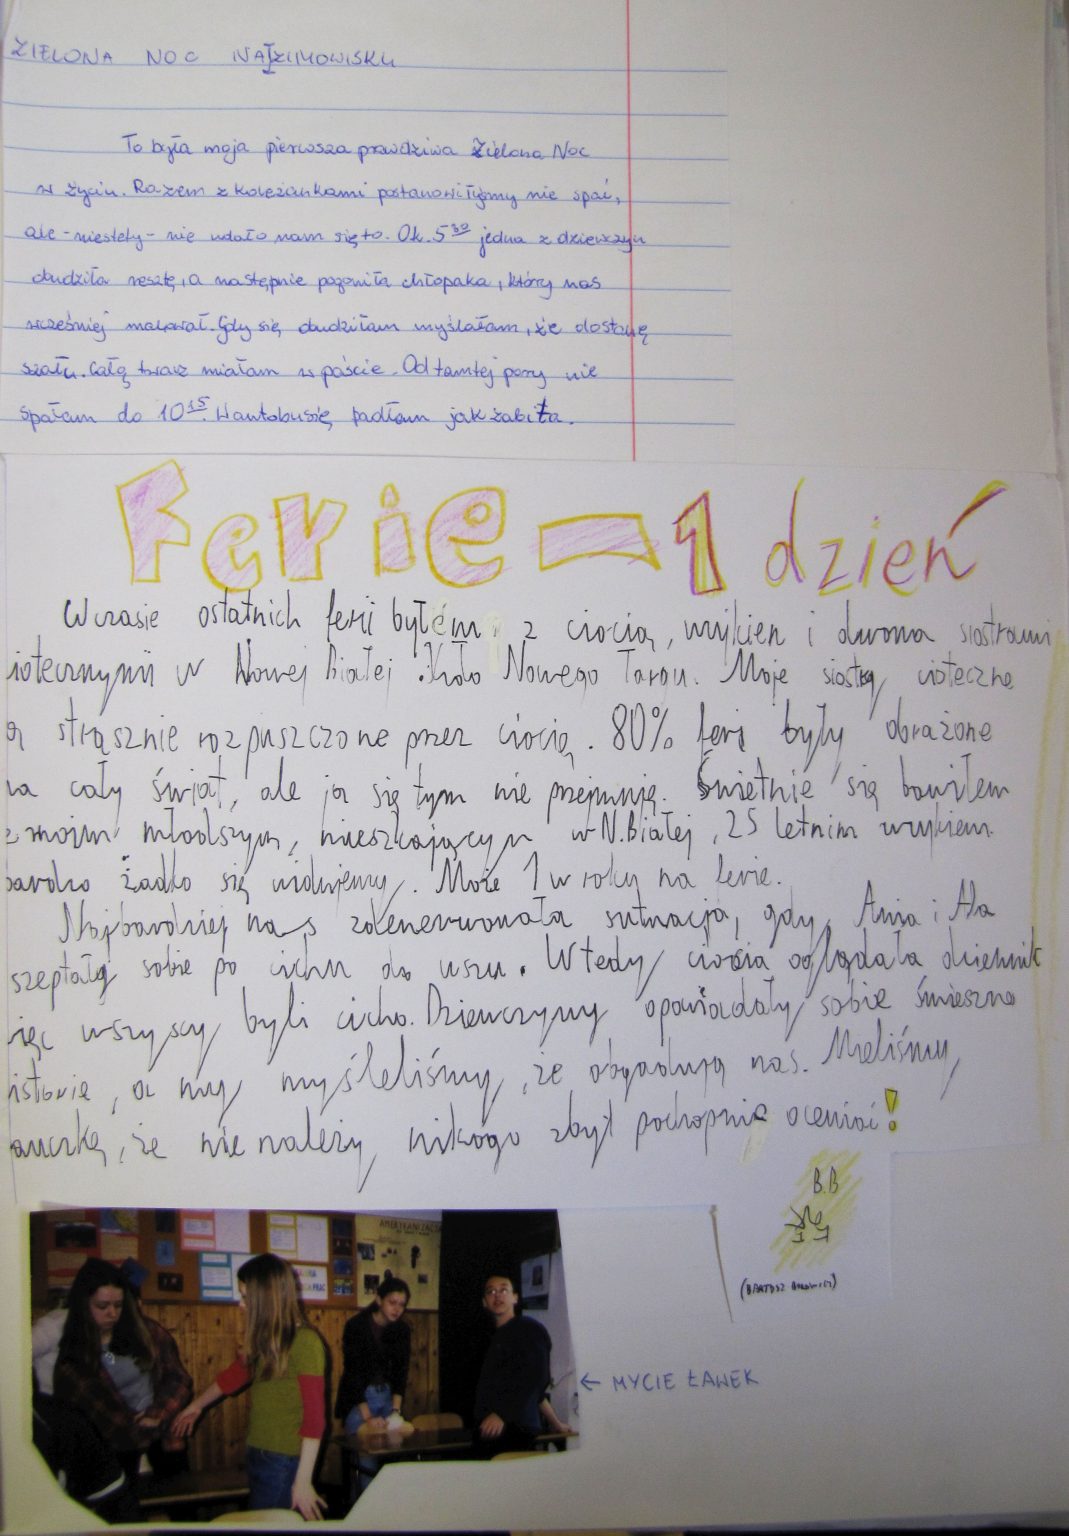 ZIELONA NOC NA ZIMOWISKU
To była moja pierwsza prawdziwa Zielona Noc
w życiu. Razem z koleżankami postanowiłyśmy nie spać,
ale - niestety - nie udało nam się to. Ok. 5³⁰ jedna z dziewczyn
obudziła resztę, a następnie pogoniła chłopaka, który nas
wcześniej malował. Gdy się obudziłam myślałam, że dostanę
szału. Całą twarz miałam w paście. Od tamtej pory nie
spałam do 10¹⁵. W autobusie padłam jak zabita.
Ferie - 1 dzień
W czasie ostatnich ferii byłem z ciocią, wujkiem i dwoma siostrami
iotecznymi w Nowej Białej koło Nowego Targu. Moje siostry cioteczne
ą strasznie rozpuszczone przez ciocię. 80% ferii były obrażone
na cały świat, ale ja się tym nie przejmuję. Świetnie się bawiłem
z moim młodszym, mieszkającym w N.Białej, 25 letnim wujkiem.
bardzo żadko się widujemy. Może 1 w roku na ferie.
Najbardziej nas zdenerwowała sytuacja, gdy Ania i Ala
szeptały sobie po cichu do uszu. Wtedy ciocia oglądała dziennik
więc wszyscy byli cicho. Dziewczyny opowiadały sobie śmieszne
istorie, a my myśleliśmy, że obgadują nas. Mieliśmy
auczkę, że nie należy nikogo zbyt pochopnie oceniać!
B.B
(BARTOSZ
AMERYKANIZACJA
PRAC
← MYCIE ŁAWEK